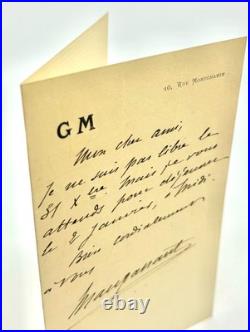 10, Rue Montchanin
GM
Mon cher ami,
Je ne suis pas libre le
31 Xbre mais je vous
attends pour déjeuner
le 2 janvier, à midi
Bien cordialement
à vous
Maupassant